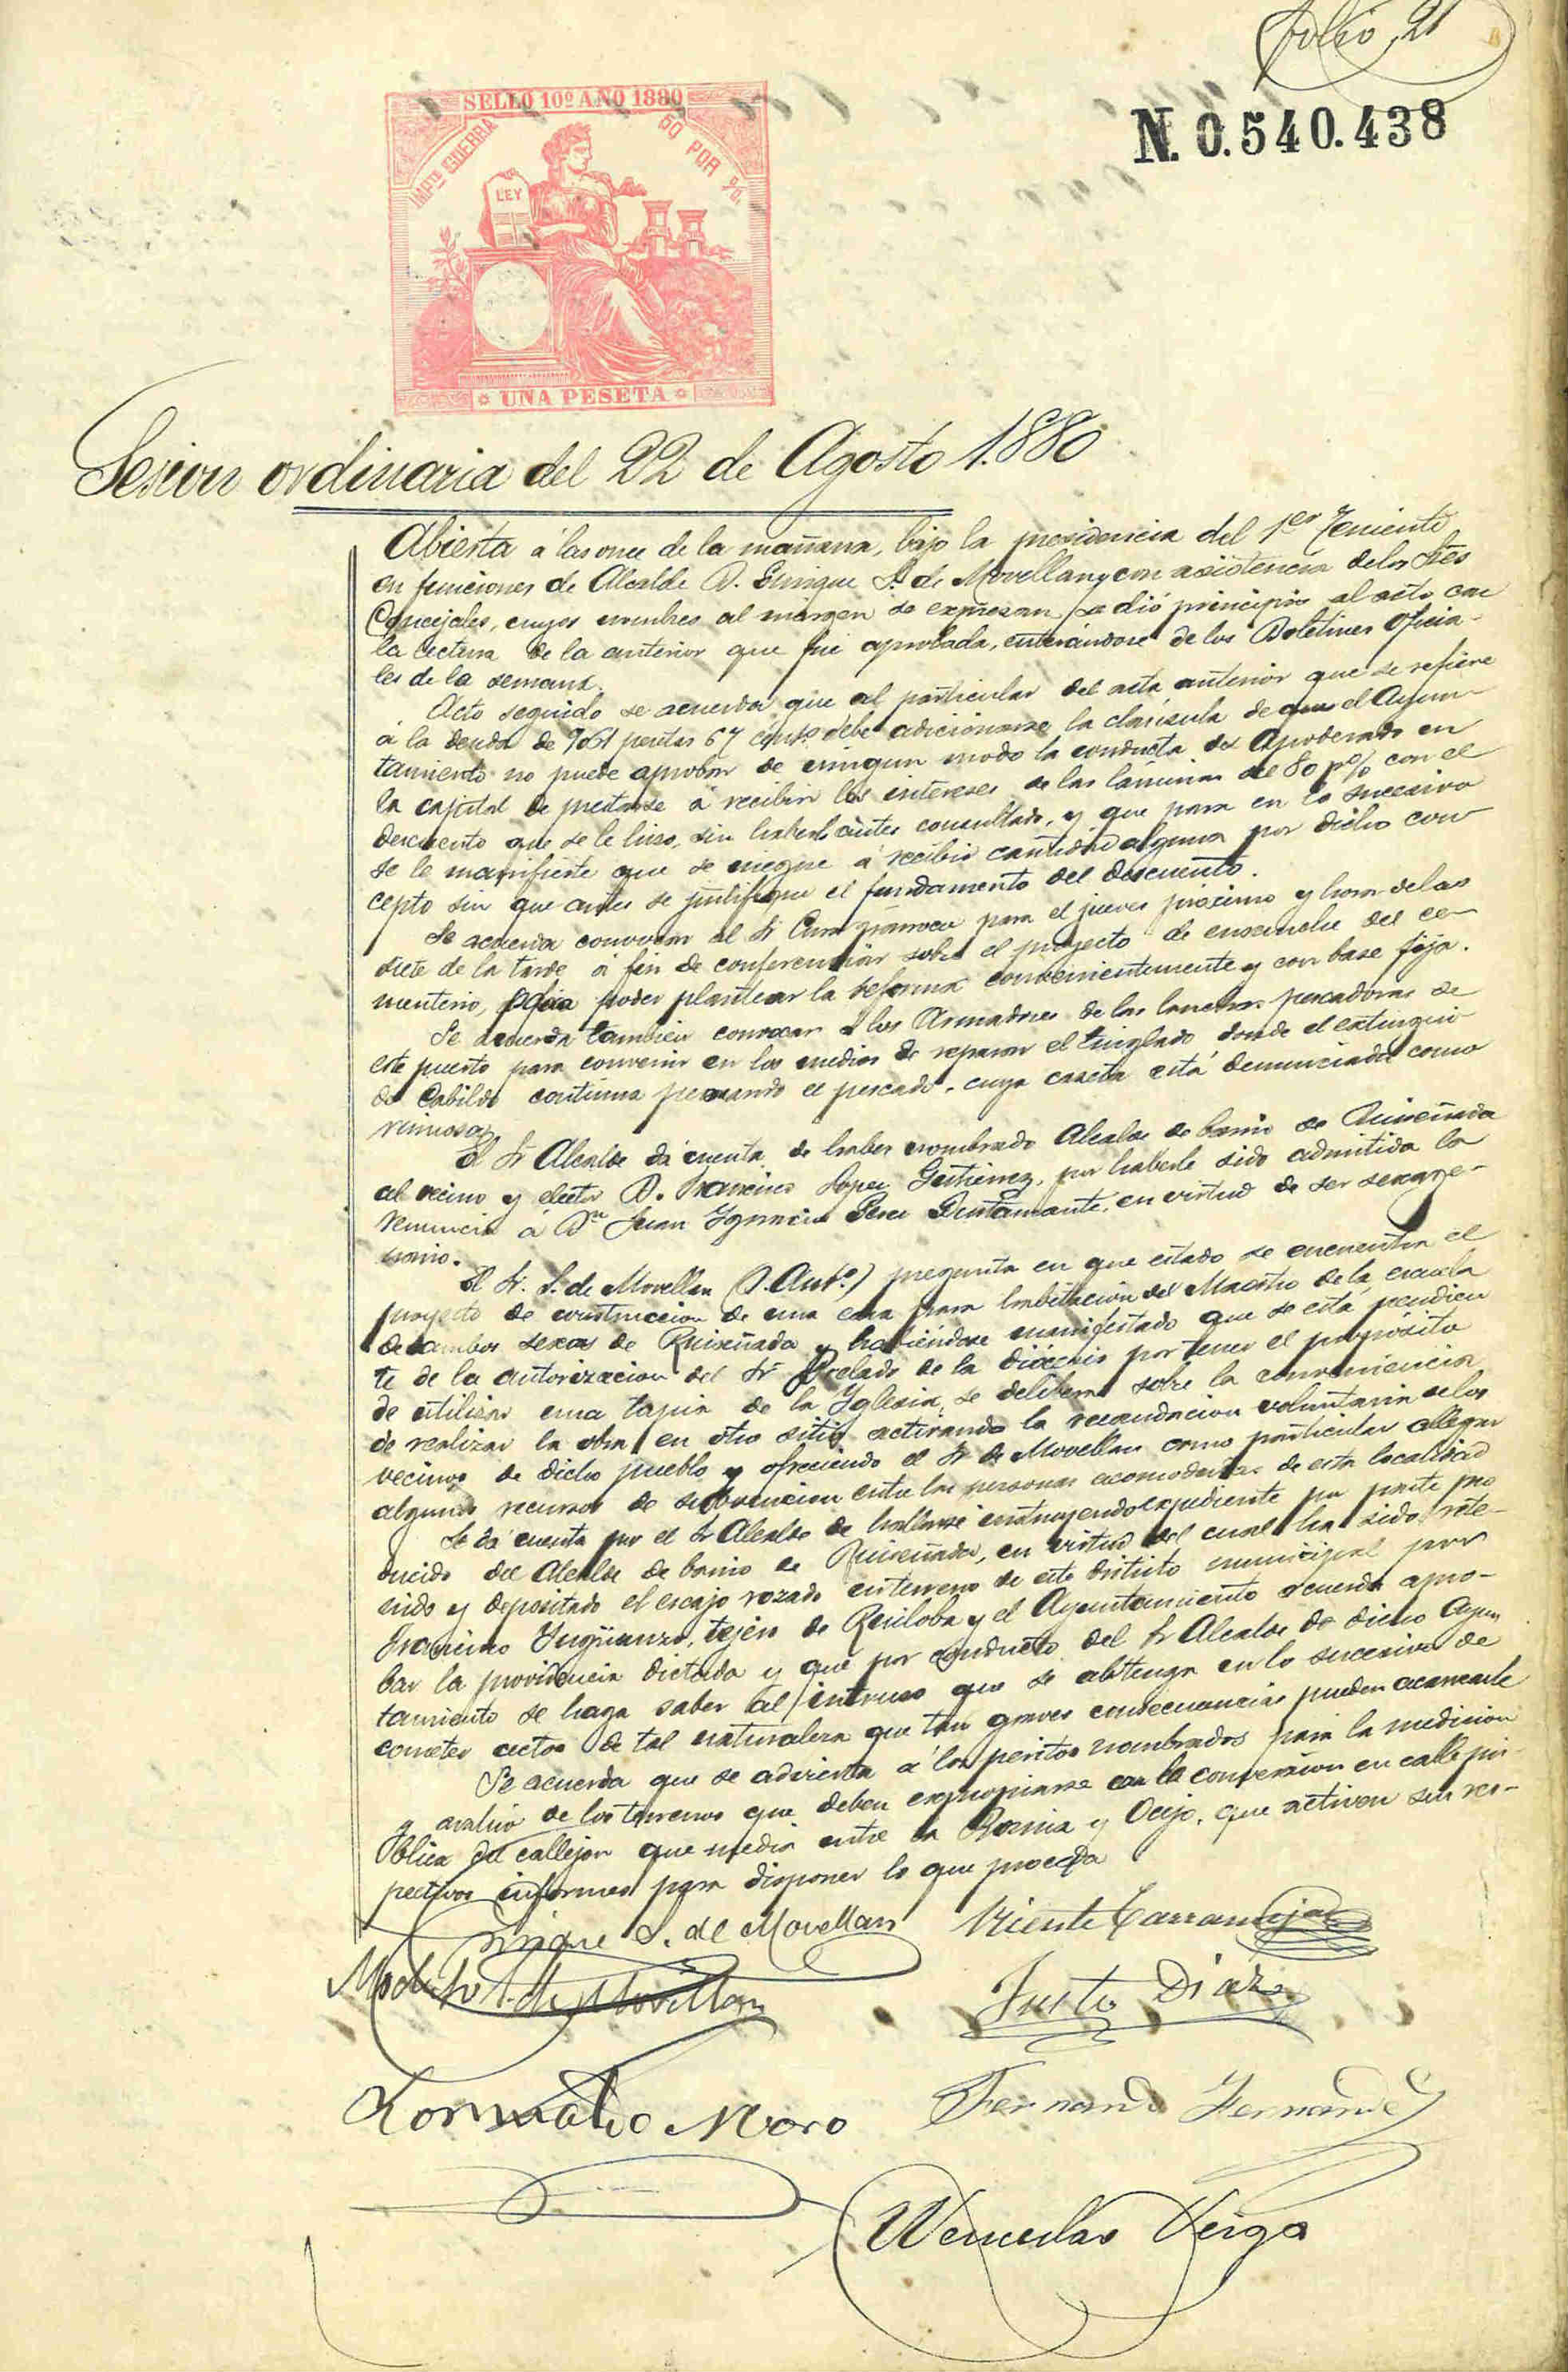 Folio 21
N. 0.540.438
SELLO 10º AÑO 1880
IMPTO GUERRA 50 POR %.
LEY
UNA PESETA
Sesion ordinaria del 22 de Agosto 1.880
Abierta á las once de la mañana, bajo la presidencia del 1er Teniente
en funciones de Alcalde D. Enrique S. de Movellan y con asistencia de los Sres
Concejales, cuyos nombres al márgen se expresan, se dió principio al acto con
la lectura de la anterior que fué aprobada, enterándose de los Boletines Oficia-
les de la semana.
Acto seguido se acuerda que al particular del acta anterior que se refiere
á la deuda de pesetas 67 debe adicionarse la cláusula de que el Ayun-
tamiento no puede aprobar de ningun modo la conducta del Apoderado en
la capital de prestarse á recibir los intereses de las láminas del 80 p% con el
descuento que se le hizo, sin haberlo ántes consultado, y que para en lo sucesivo
se le manifieste que se niegue á recibir cantidad alguna por dicho con-
cepto sin que antes se justifique el fundamento del descuento.
Se acuerda convocar al Sr Cura párroco para el jueves próximo y hora de las
siete de la tarde á fin de conferenciar sobre el proyecto de ensanche del ce-
menterio, para poder plantear la reforma convenientemente y con base fija.
Se acuerda tambien convocar á los Armadores de las lanchas pescadoras de
este puerto para convenir en los medios de reparar el tinglado donde el extingui-
do Cabildo continua pesando el pescado, cuya caseta está denunciada como
ruinosa.
El Sr Alcalde dá cuenta de haber nombrado Alcalde de barrio de Ruiseñada
al vecino y elector D. Francisco Lopez Gutierrez, por haberle sido admitida la
renuncia á Dn Juan Ygnacio Perez Bustamante, en virtud de ser sexage-
nario.
El Sr. S. de Movellan (D. Anto.) pregunta en que estado se encuentra el
proyecto de construccion de una casa para habitacion del Maestro de la escuela
de ambos sexos de Ruiseñada y habiéndose manifestado que se está pendien
te de la autorizacion del Sr Prelado de la diócesis por tener el propósito
de utilizar una tapia de la Yglesia, se delibera sobre la conveniencia
de realizar la obra en otro sitio activando la recaudacion voluntaria de los
vecinos de dicho pueblo y ofreciendo el Sr de Movellan como particular allegar
algunos recursos de subvencion entre las personas acomodadas de esta localidad
Se dá cuenta por el Sr Alcalde de hallarse instruyendo expediente por parte pro
ducido del Alcalde de barrio de Ruiseñada, en virtud del cual ha sido rete-
nido y depositado el escajo rozado en terreno de este distrito municipal por
Francisco Ynguanzo, tejero de Ruiloba y el Ayuntamiento acuerda apro-
bar la providencia dictada y que por conducto del Sr Alcalde de dicho Ayun
tamiento se haga saber al intruso que se abtenga en lo sucesivo de
cometer actos de tal naturaleza que tan graves consecuencias pueden acarrearle
Se acuerda que se advierta á los peritos nombrados para la medicion
y avaluo de los terrenos que deben expropiarse con la conversion en calle pú-
blica del callejon que media entre la y Ocejo, que activen sus res-
pectivos informes para disponer lo que proceda
Enrique S. de Movellan Vicente Carranceja
Modesto S. de Movellan Justo Diaz
Moro Fernando Fernandez
Wenceslao Veiga